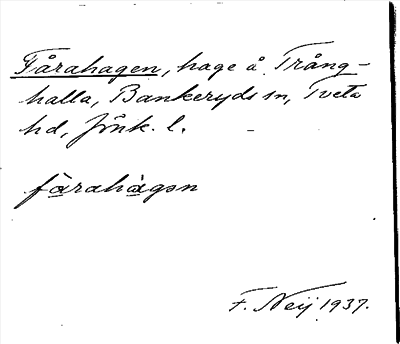 Fårahagen, hage å Trång-
halla, Bankeryds sn, Tveta
hd, Jönk. l.
fårahàgən
F. Neij 1937.